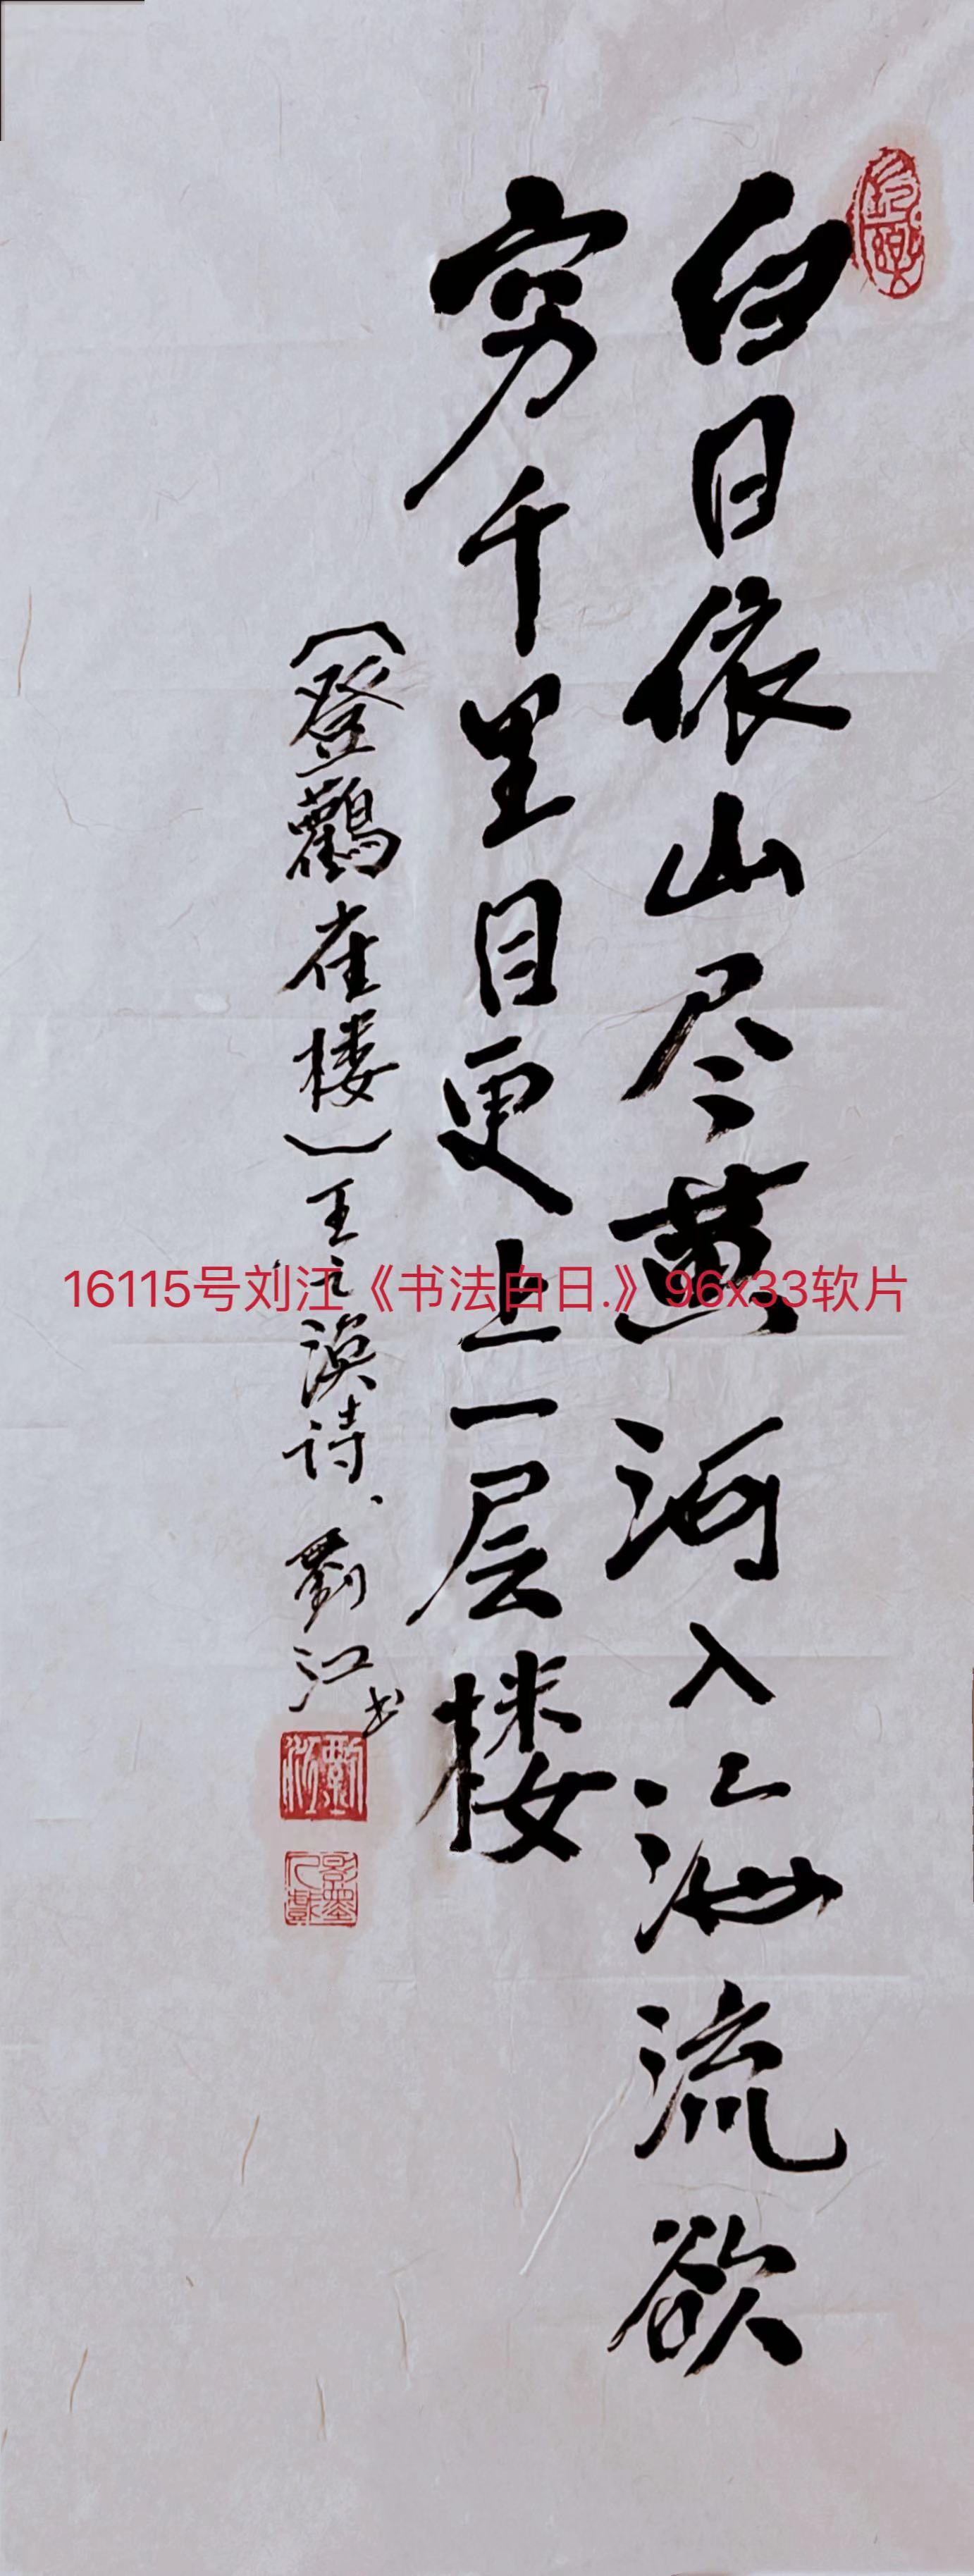 白日依山尽黄河入海流欲
穷千里目更上一层楼
（登鹳雀楼）王之涣诗、刘江书
16115号刘江《书法白日.》96x33软片
劉江